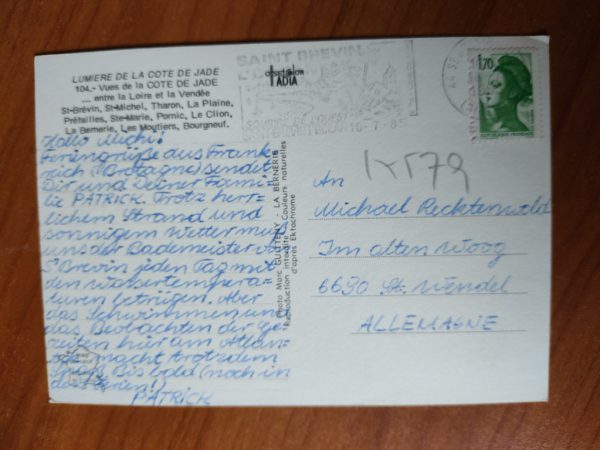 LUMIERE DE LA COTE DE JADE
104.- Vues de la COTE DE JADE
... entre la Loire et la Vendée
St-Brévin, St-Michel, Tharon, La Plaine,
Préfailles, Ste-Marie, Pornic, Le Clion,
La Bernerie, Les Moutiers, Bourgneuf.
Hallo Michi!
Feriengrüße aus Frank-
reich (Bretagne) sendet
Dir und Deiner Fami-
lie PATRICK. Trotz herr-
lichem Strand und
sonnigem Wetter muß
uns der Bademeister
S'Brevin jeden Tag mit
den Wassertempera-
turen betrügen. Aber
das Schwimmen un
das Beobachten der Ge-
zeiten hier am Atlan-
tik macht trotzdem
Spaß. Bis bald (noch in
den Ferien!)
PATRICK
Photo Marc GUITTENY - LA BERNERIE
Reproduction interdite - Couleurs naturelles
d'après Ektachrome
SAINT BREVIN
L'O
16-7-8
1,70
REPUBLIQUE FRANÇAISE
An
Michael Recktenwald
Im alten Woog
6690 St. Wendel
ALLEMAGNE